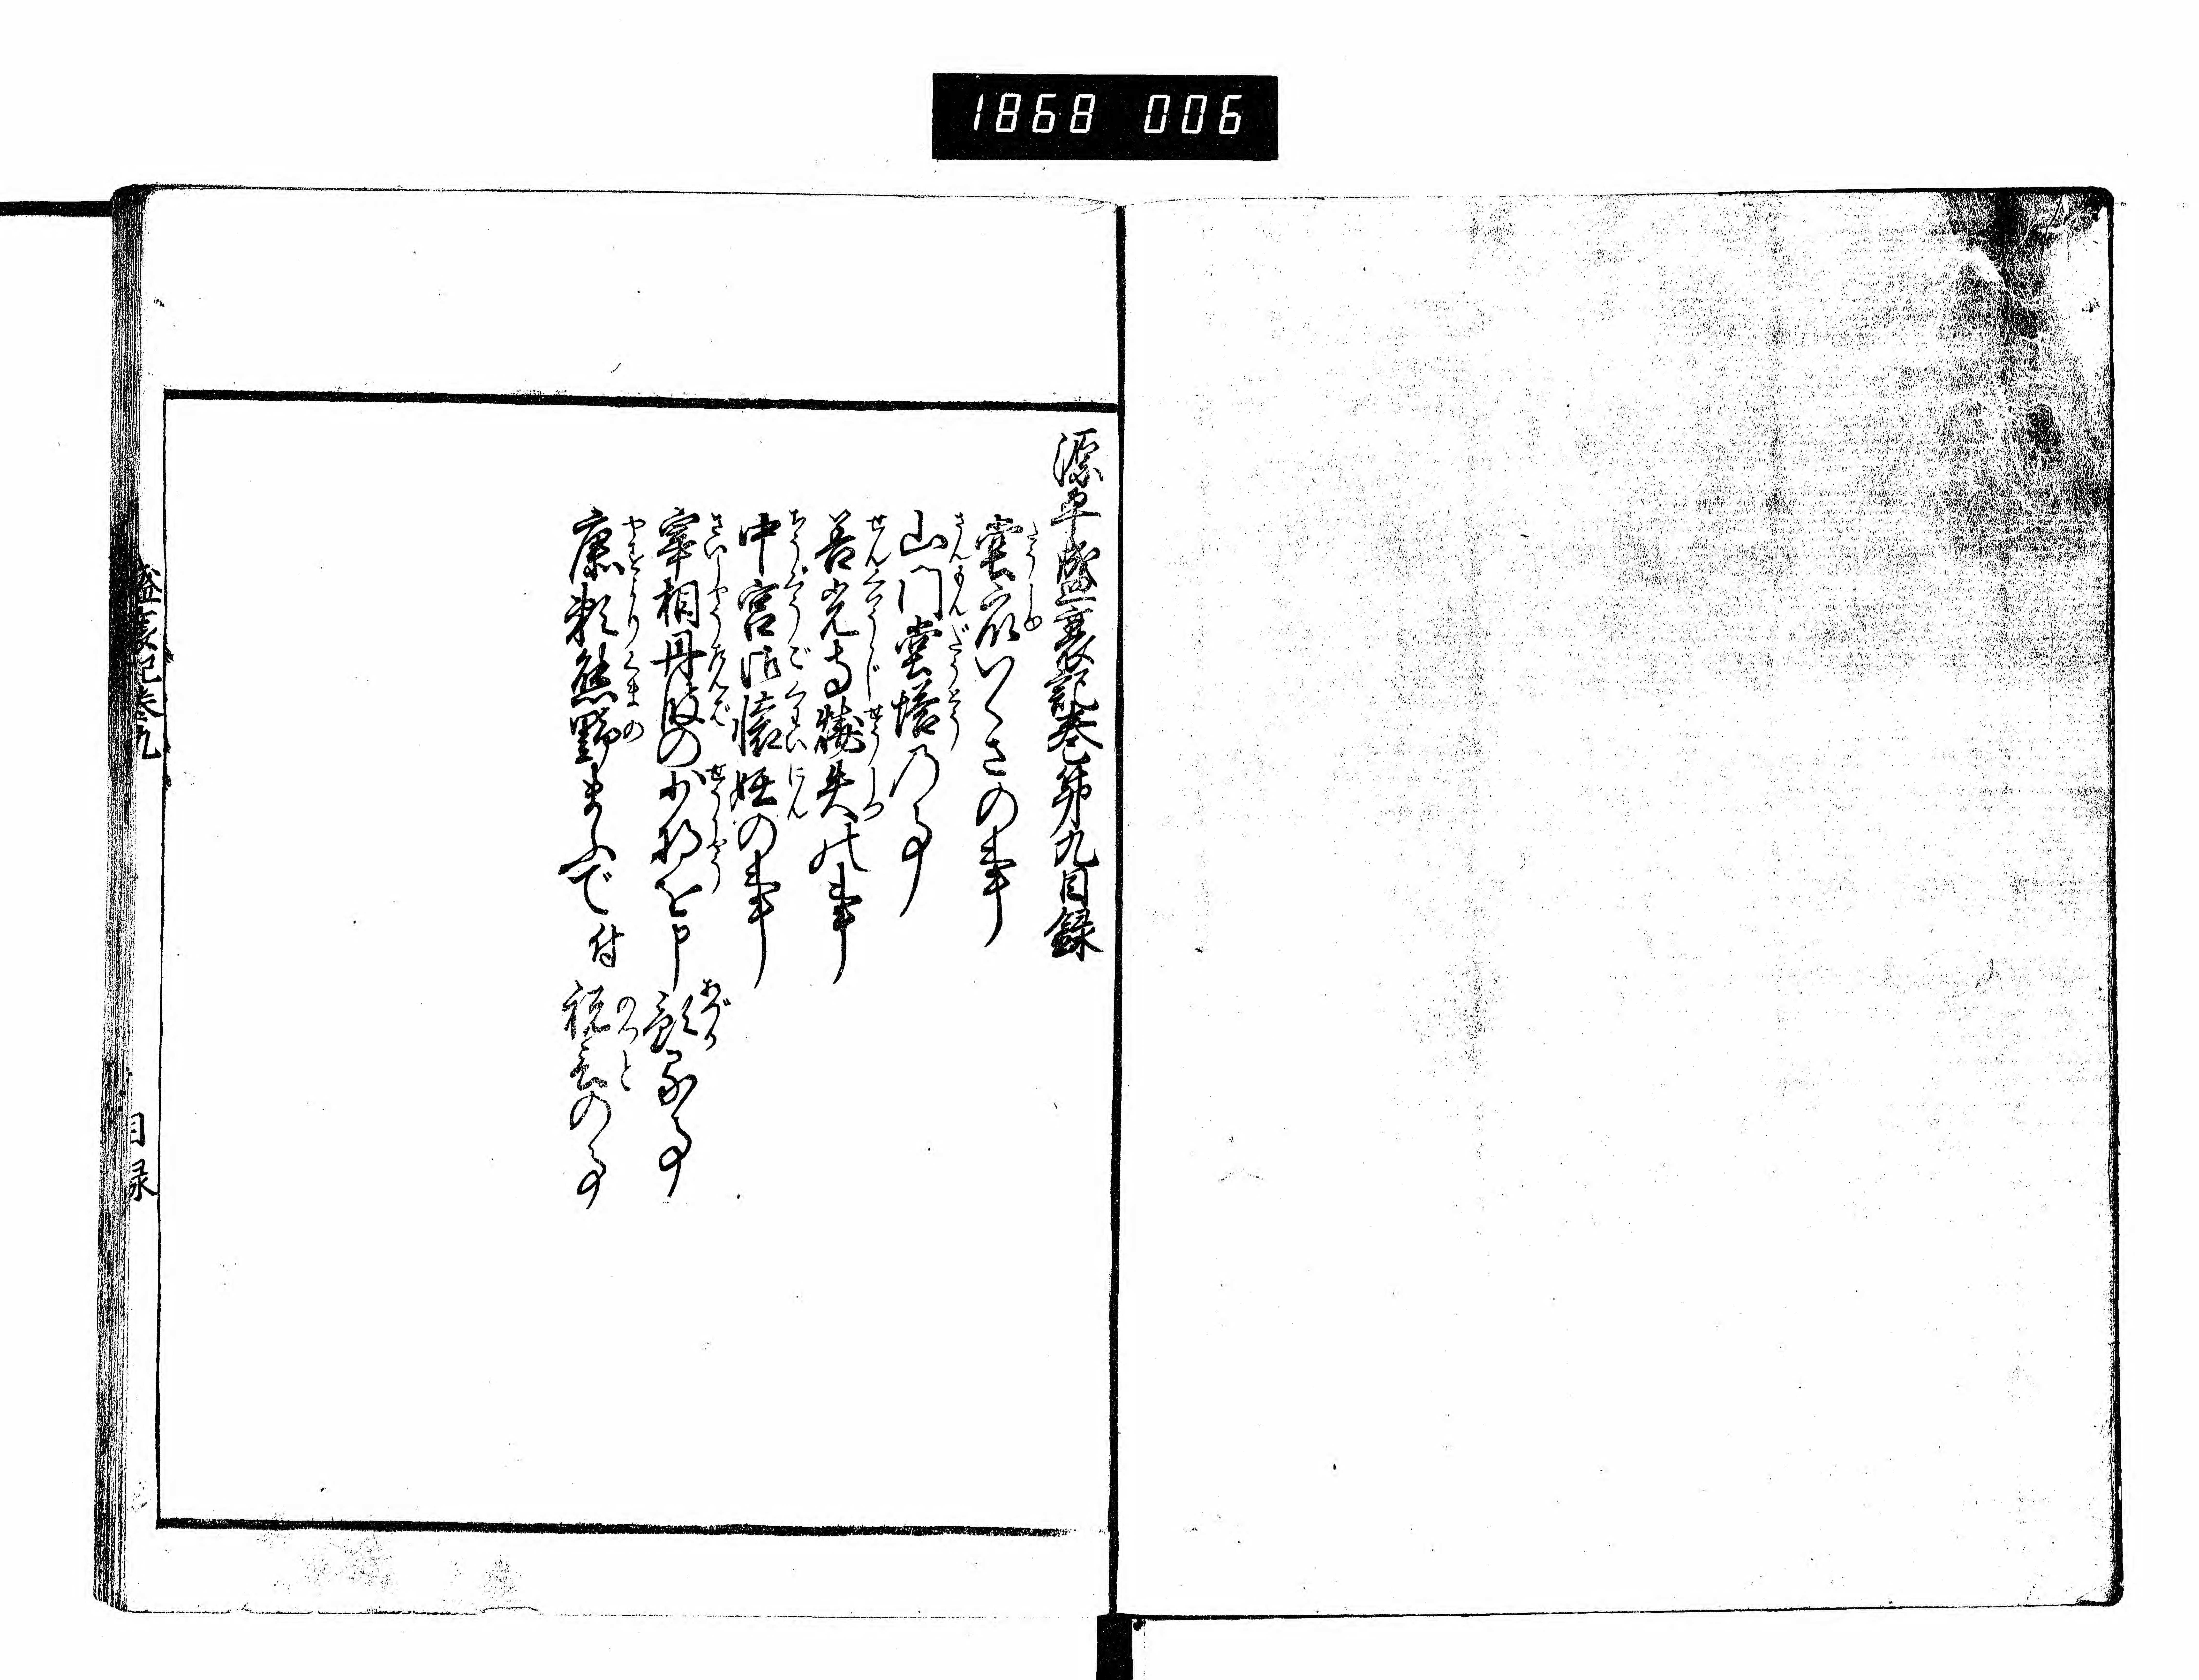 1868 006
源平盛衰記巻第九目録
堂衆いくさの事
山門堂塔の事
善光寺焼失の事
中宮御懐妊の事
宰相丹波の少将を申預る事
康頼熊野まふで付祝言の事
盛衰記巻九 目録